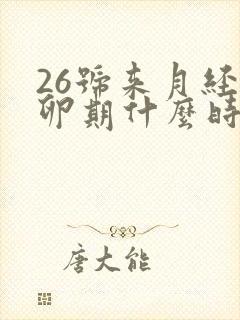 26號来月经
卵期什麼時
唐大能